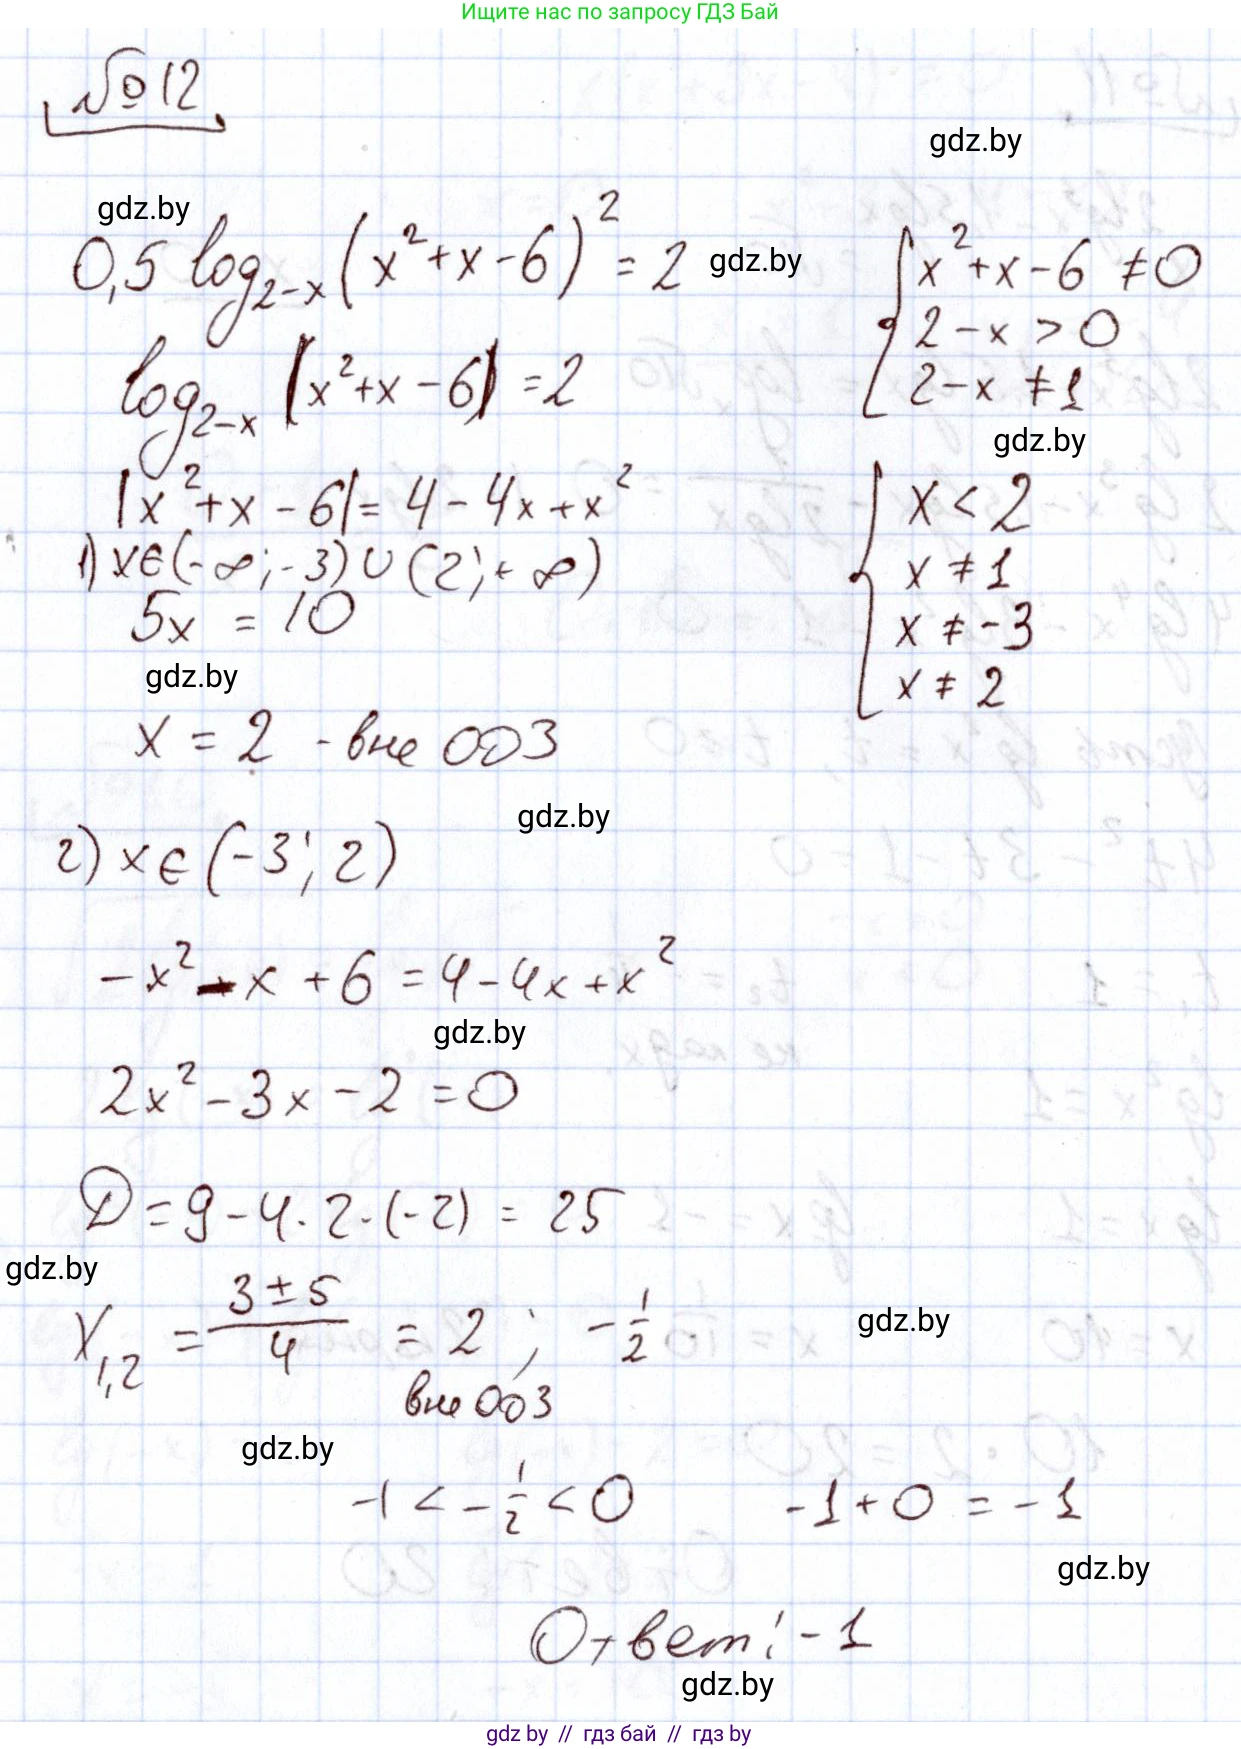 Ищите нас по запросу ГДЗ Бай
№12
gdz.by
gdz.by
0,5 log_{2-x} (x² + x - 6)² = 2
gdz.by
{ x² + x - 6 ≠ 0
2 - x > 0
2 - x ≠ 1
log_{2-x} |x² + x - 6| = 2
gdz.by
|x² + x - 6| = 4 - 4x + x²
{ x < 2
x ≠ 1
x ≠ -3
x ≠ 2
1) x ∈ (-∞; -3) ∪ (2; +∞)
5x = 10
gdz.by
x = 2 - вне ООЗ
gdz.by
2) x ∈ (-3; 2)
-x² - x + 6 = 4 - 4x + x²
gdz.by
2x² - 3x - 2 = 0
D = 9 - 4 · 2 · (-2) = 25
gdz.by
x_{1,2} = \frac{3 ± 5}{4} = 2 ; -\frac{1}{2}
gdz.by
вне ООЗ
gdz.by
-1 < -\frac{1}{2} < 0
-1 + 0 = -1
gdz.by
Ответ: -1
gdz.by
gdz by // гдз бай // гдз by